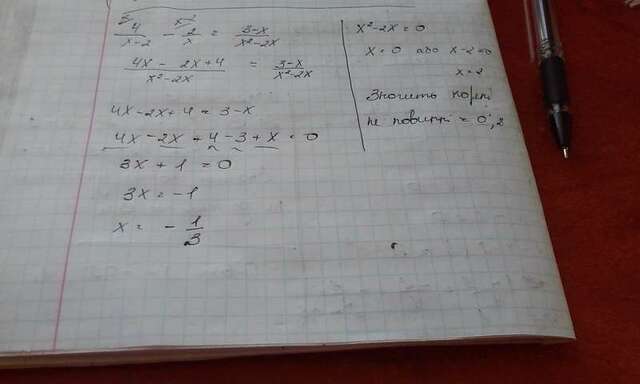 4/(x-2) - 2/x = (3-x)/(x²-2x)
(4x - 2x+4)/(x²-2x) = (3-x)/(x²-2x)
4x-2x+4 = 3-x
4x-2x+4-3+x=0
3x+1=0
3x=-1
x= -1/3
x²-2x=0
x=0 або x-2=0
x=2
Значить корні
не повинні =0;2